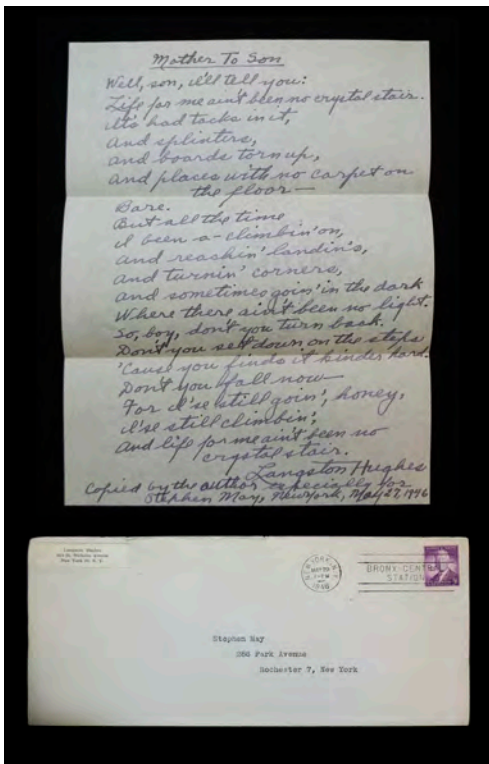 Mother To Son
Well, son, I'll tell you:
Life for me ain't been no crystal stair.
It's had tacks in it,
And splinters,
And boards torn up,
And places with no carpet on
the floor—
Bare.
But all the time
I been a-climbin' on,
And reachin' landin's,
And turnin' corners,
And sometimes goin' in the dark
Where there ain't been no light.
So, boy, don't you turn back.
Don't you set down on the steps
'Cause you finds it kinder hard.
Don't you fall now—
For I'se still goin', honey,
I'se still climbin',
And life for me ain't been no
crystal stair.
Langston Hughes
Copied by the author especially for
Stephen May, New York, May 27, 1946
Langston Hughes
New York
NEW YORK, N.Y.
1946
BRONX CENTRAL
STATION
Stephen May
Park Avenue
Rochester 7, New York